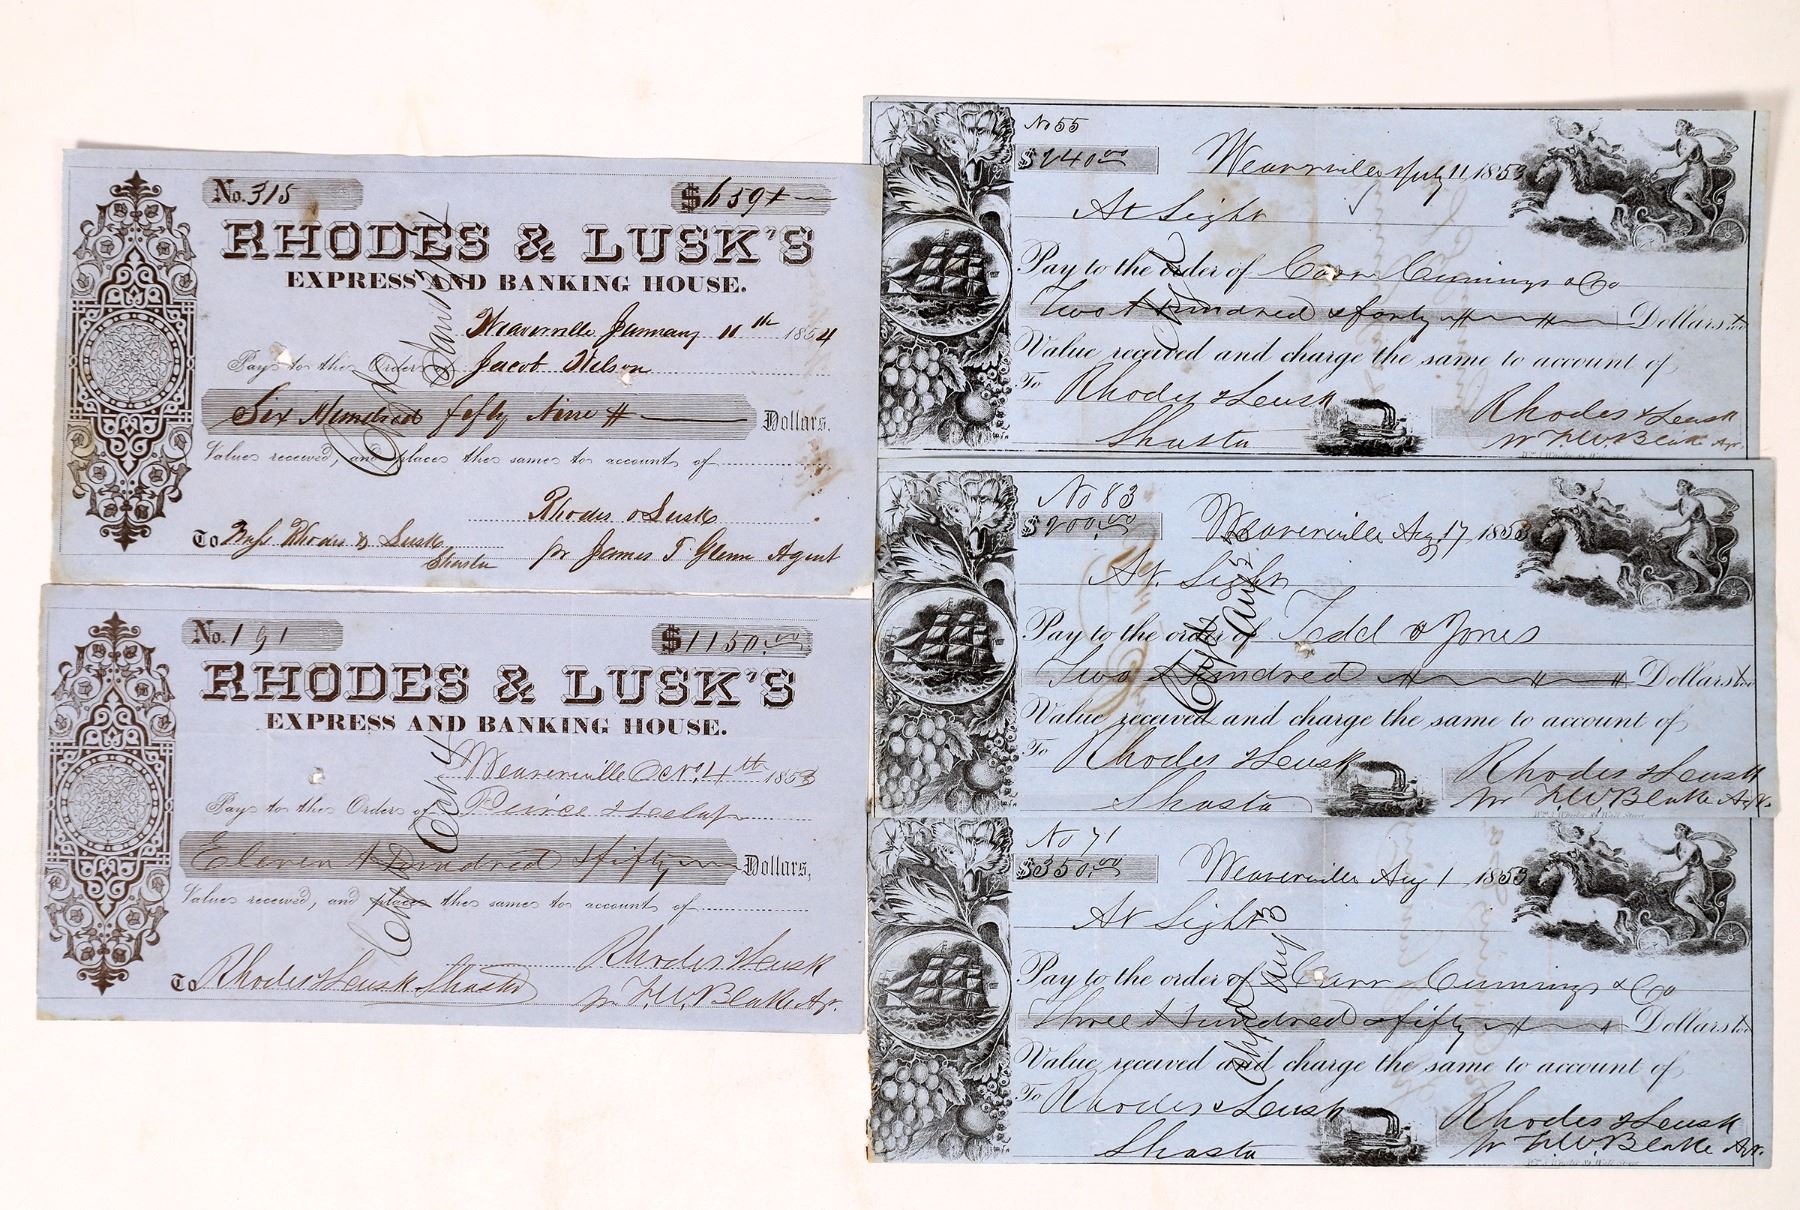 No. 315 $659+
RHODES & LUSK'S
EXPRESS AND BANKING HOUSE.
Weaverville January 11th 1854
Pay to the Order of Jacob Wilson
Six Hundred fifty Nine # Dollars.
Value received, and place the same to account of
Rhodes & Lusk
To Rhodes & Lusk
Shasta pr James T Glenn Agent
No. 191 $1150.00
RHODES & LUSK'S
EXPRESS AND BANKING HOUSE.
Weaverville Oct. 4th 1853
Pay to the Order of Peirce &
Eleven Hundred & fifty Dollars,
Value received, and place the same to account of
Rhodes & Lusk
To Rhodes & Lusk Shasta pr F.W. Blake Agt.
No 55
$240.00 Weaverville July 11 1853
At Sight
Pay to the order of Carr Cumings & Co
Two Hundred & forty Dollars
Value received and charge the same to account of
To Rhodes & Lusk Rhodes & Lusk
Shasta pr F.W. Blake Agt.
No 83
$200.00 Weaverville Aug 17 1853
At Sight
Pay to the order of Todd & Jones
Two Hundred Dollars
Value received and charge the same to account of
To Rhodes & Lusk Rhodes & Lusk
Shasta pr F.W. Blake Agt.
No 71
$350.00 Weaverville Aug 1 1853
At Sight
Pay to the order of Carr Cumings & Co
Three Hundred & fifty Dollars
Value received and charge the same to account of
To Rhodes & Lusk Rhodes & Lusk
Shasta pr F.W. Blake Agt.